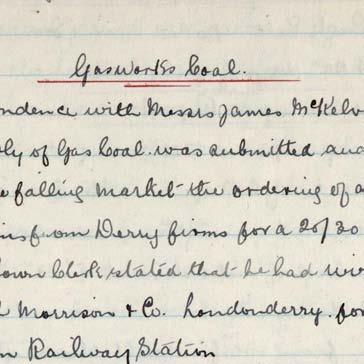 Gasworks Coal.
ndence with Messrs James McKelv
ly of Gas Coal was submitted and
e falling market the ordering of a
ns from Derry firms for a 20/30
own Clerk stated that he had wi
l Morrison & Co. Londonderry. for
n Railway Station